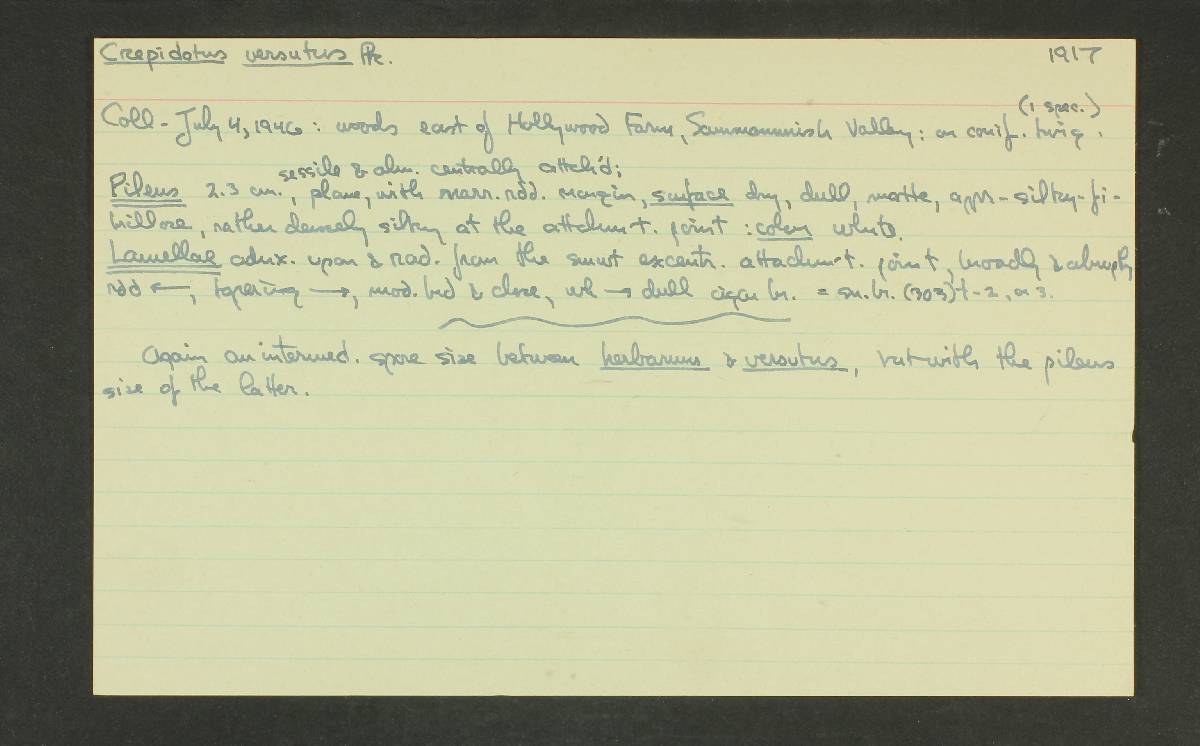 Crepidotus versutus Pk. 1917
(1 spec.)
Coll - July 4, 1946 : woods east of Hollywood Farm, Sammammish Valley : on conif. twig.
sessile & alm. centrally attch'd;
Pileus 2.3 cm., plane, with narr. rdd. margin, surface dry, dull, matte, appr-silky-fi-
brillose, rather densely silky at the attchm't. point : color white.
Lamellae adnx. upon & rad. from the excentr. attachm't. point, broadly & abruptly
rdd ←, tapering →, mod. brd & close, wh → dull cigar br. = sn. br. (303) + - 2, or 3.
Again an intermed. spore size between herbarum & versutus, but with the pileus
size of the latter.